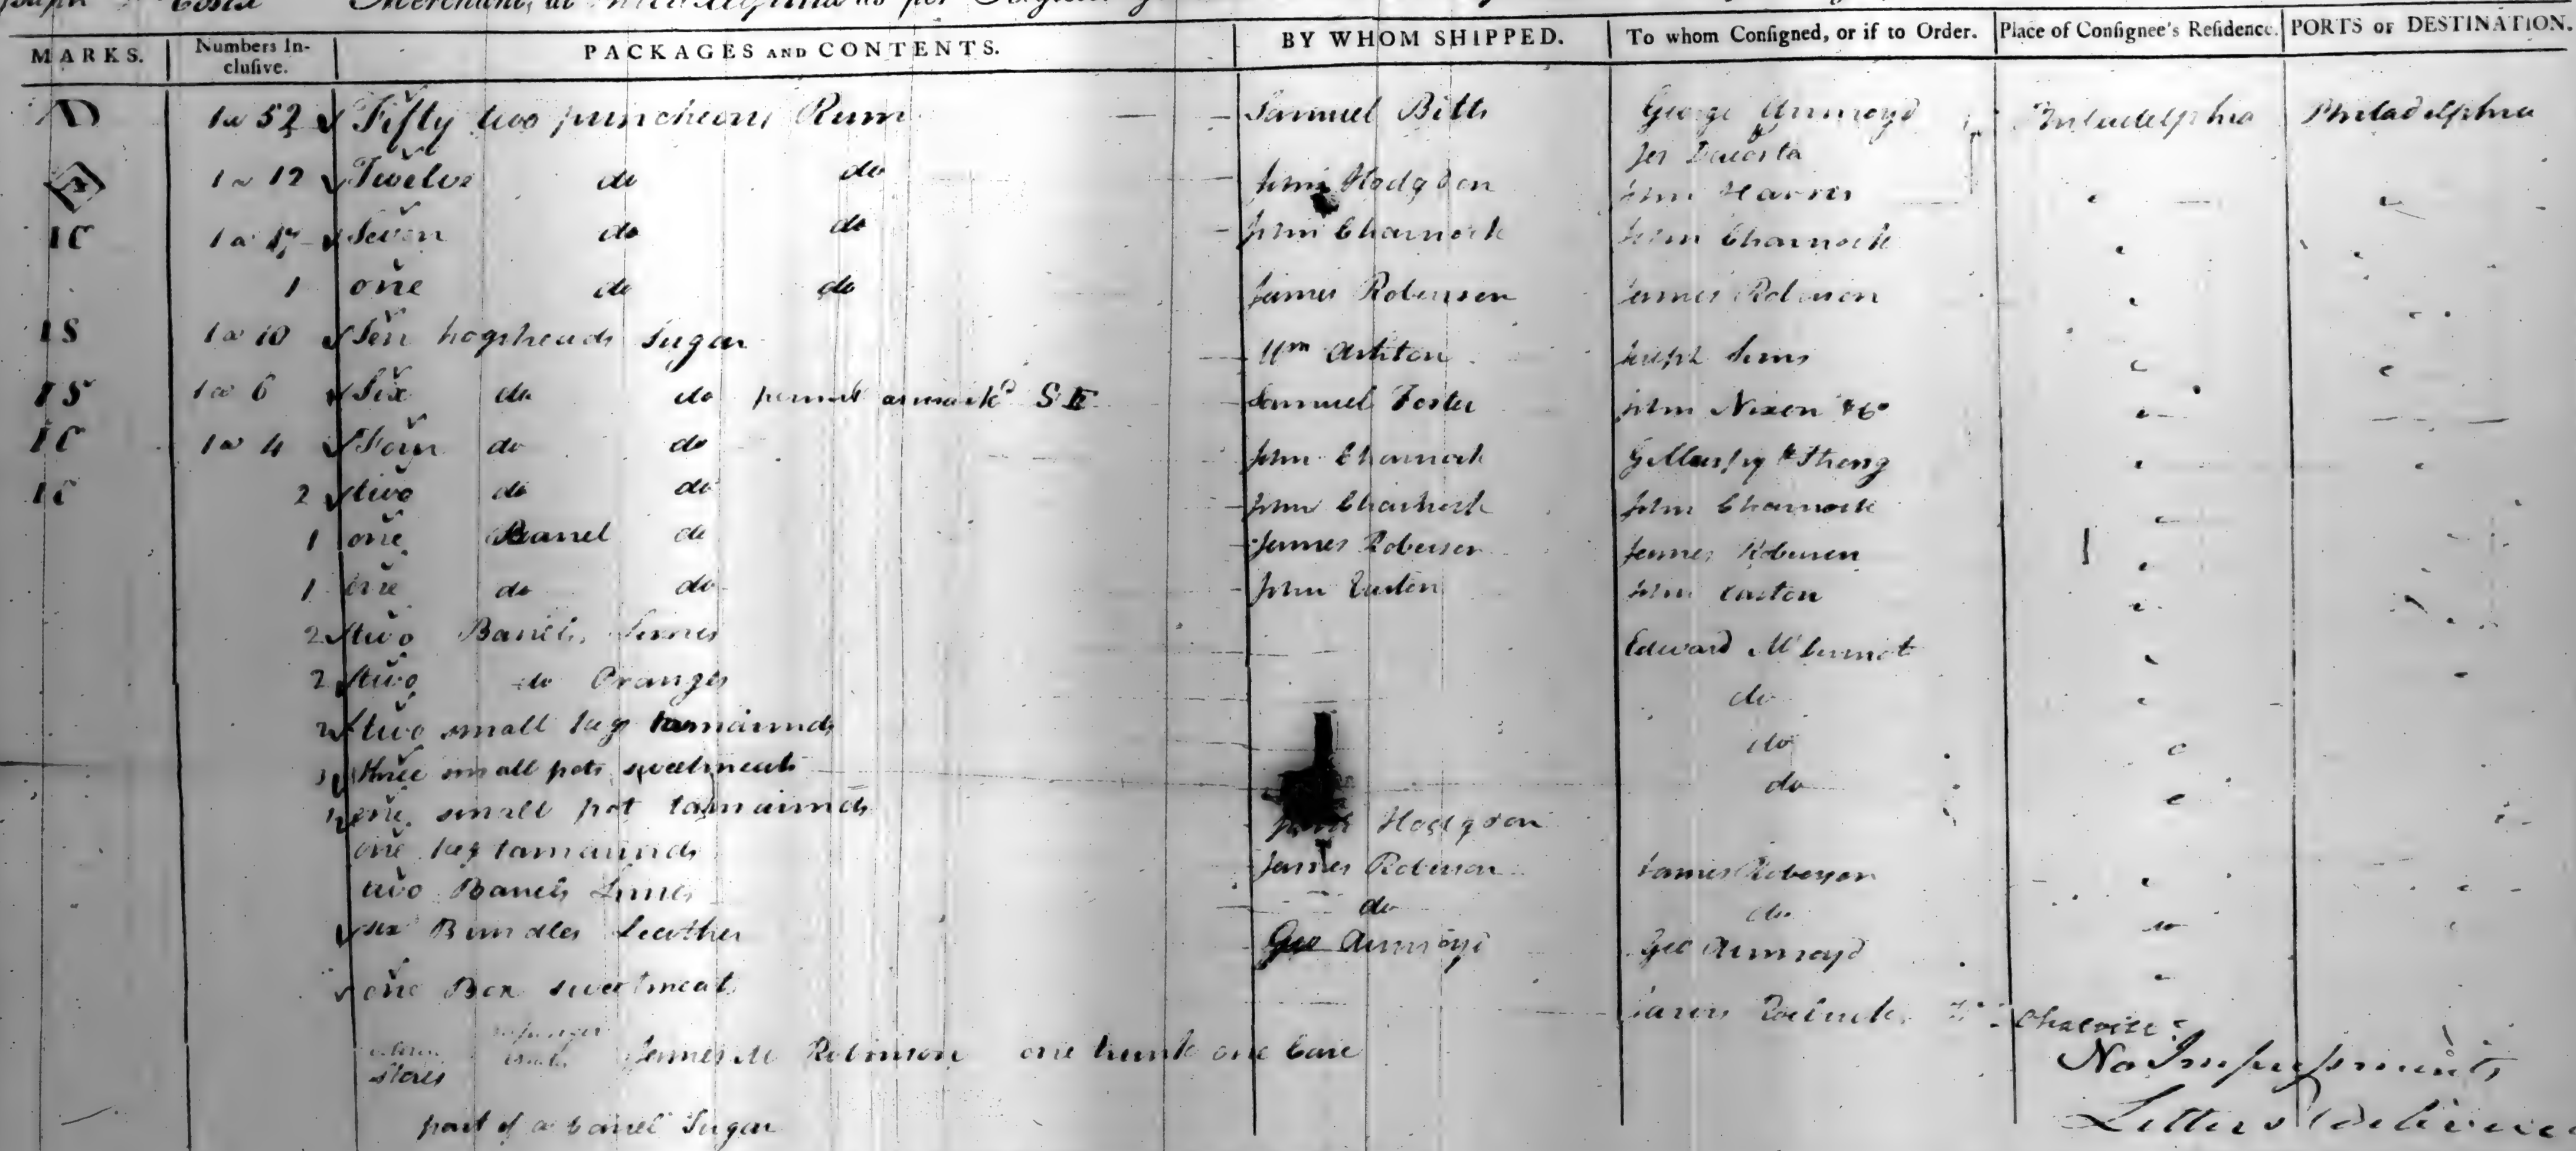 Merchant, at Philadelphia as per
MARKS. Numbers Inclusive. PACKAGES AND CONTENTS. BY WHOM SHIPPED. To whom Consigned, or if to Order. Place of Consignee's Residence. PORTS OF DESTINATION.
D 1 a 52 Fifty two puncheons Rum Samuel Bitts George Armroyd Philadelphia Philadelphia
Jos Dacosta
1 a 12 Twelve do do Hodgson John Harris
IC 1 a 7 Seven do do John Charnock John Charnock
1 one do do James Robinson James Robinson
IS 1 a 10 Ten hogsheads Sugar Wm Ashton Joseph Sims
IS 1 a 6 Six do do Samuel Foster John Nixon & Co
IC 1 a 4 Four do do John Charnock & Strong
IC 2 two do do John Charnock John Charnock
1 one Barrel do James Robinson James Robinson
1 one do do John Easton John Easton
2 two Barrels Limes Edward
2 two do Oranges do
2 two small keg tamarinds do
3 three small pots sweetmeats do
1 one small pot tamarinds Hodgson
one keg tamarinds James Robinson James Robinson
two Barrels Limes do do
six Bundles Leather Geo Armroyd Geo Armroyd
one Box sweetmeats
Stores James M Robinson one trunk one Case
part of a barrel Sugar
No Impressments
Letters delivered